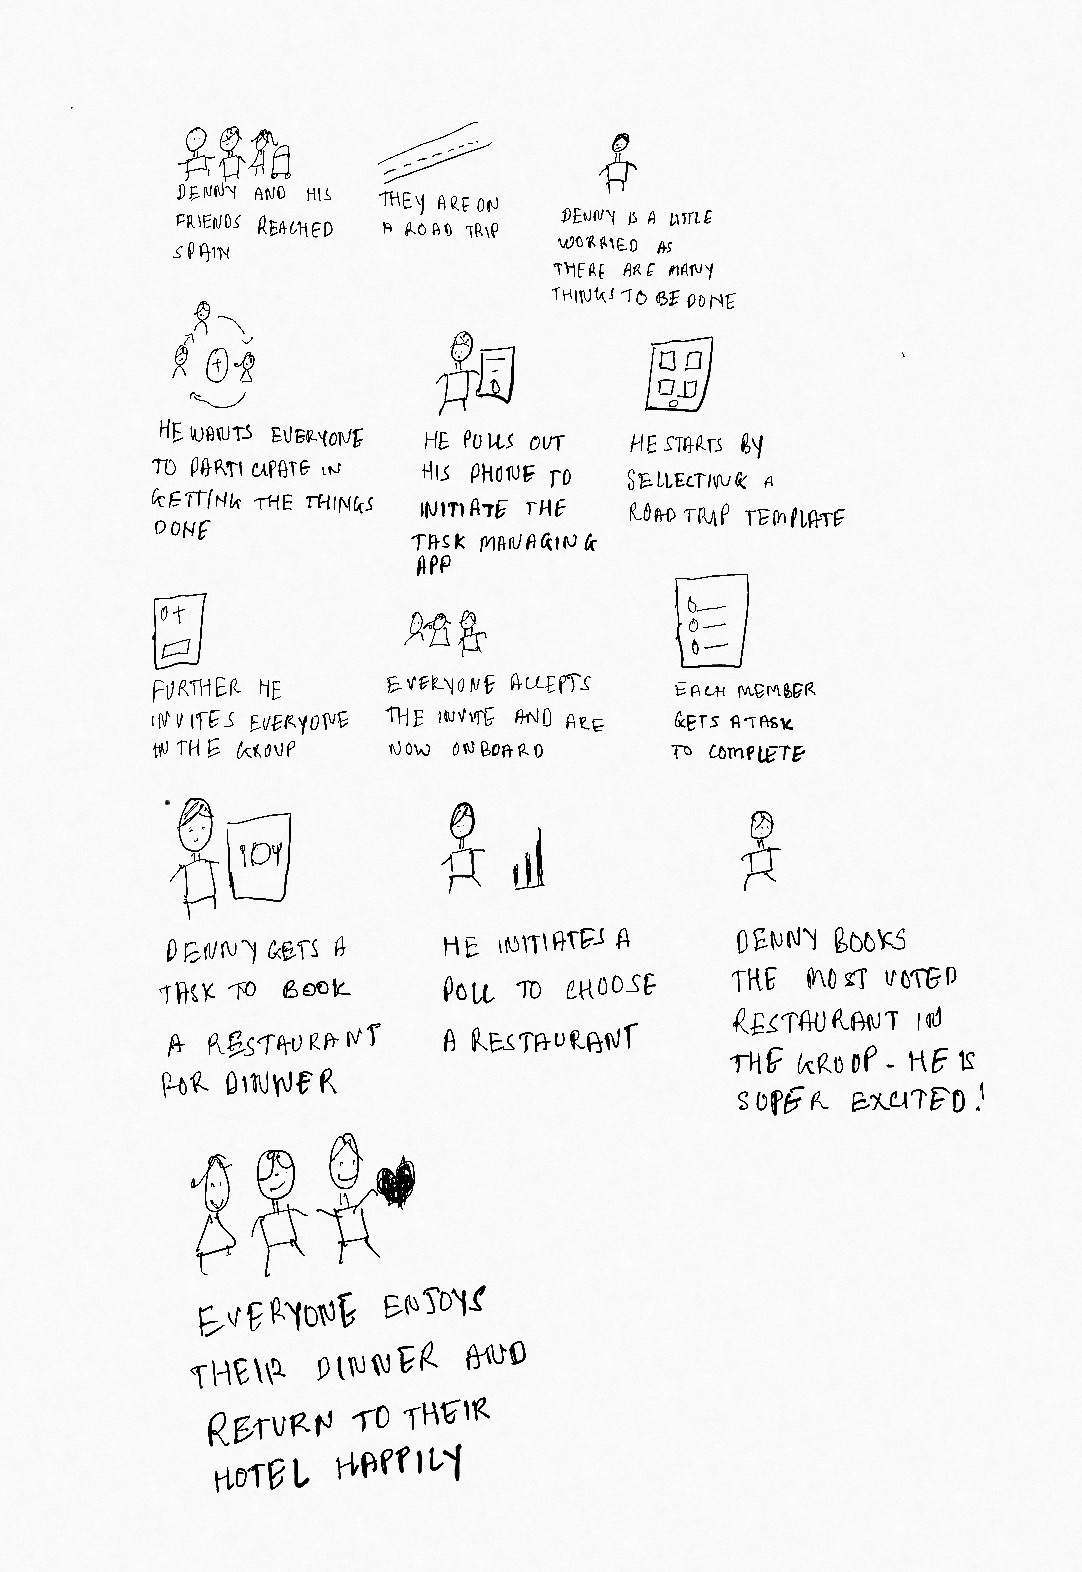 DENNY AND HIS
FRIENDS REACHED
SPAIN
THEY ARE ON
A ROAD TRIP
DENNY IS A LITTLE
WORRIED AS
THERE ARE MANY
THINGS TO BE DONE
HE WANTS EVERYONE
TO PARTICIPATE IN
GETTING THE THINGS
DONE
HE PULLS OUT
HIS PHONE TO
INITIATE THE
TASK MANAGING
APP
HE STARTS BY
SELLECTING A
ROAD TRIP TEMPLATE
FURTHER HE
INVITES EVERYONE
IN THE GROUP
EVERYONE ACCEPTS
THE INVITE AND ARE
NOW ONBOARD
EACH MEMBER
GETS A TASK
TO COMPLETE
DENNY GETS A
TASK TO BOOK
A RESTAURANT
FOR DINNER
HE INITIATES A
POLL TO CHOOSE
A RESTAURANT
DENNY BOOKS
THE MOST VOTED
RESTAURANT IN
THE GROUP - HE IS
SUPER EXCITED!
EVERYONE ENJOYS
THEIR DINNER AND
RETURN TO THEIR
HOTEL HAPPILY